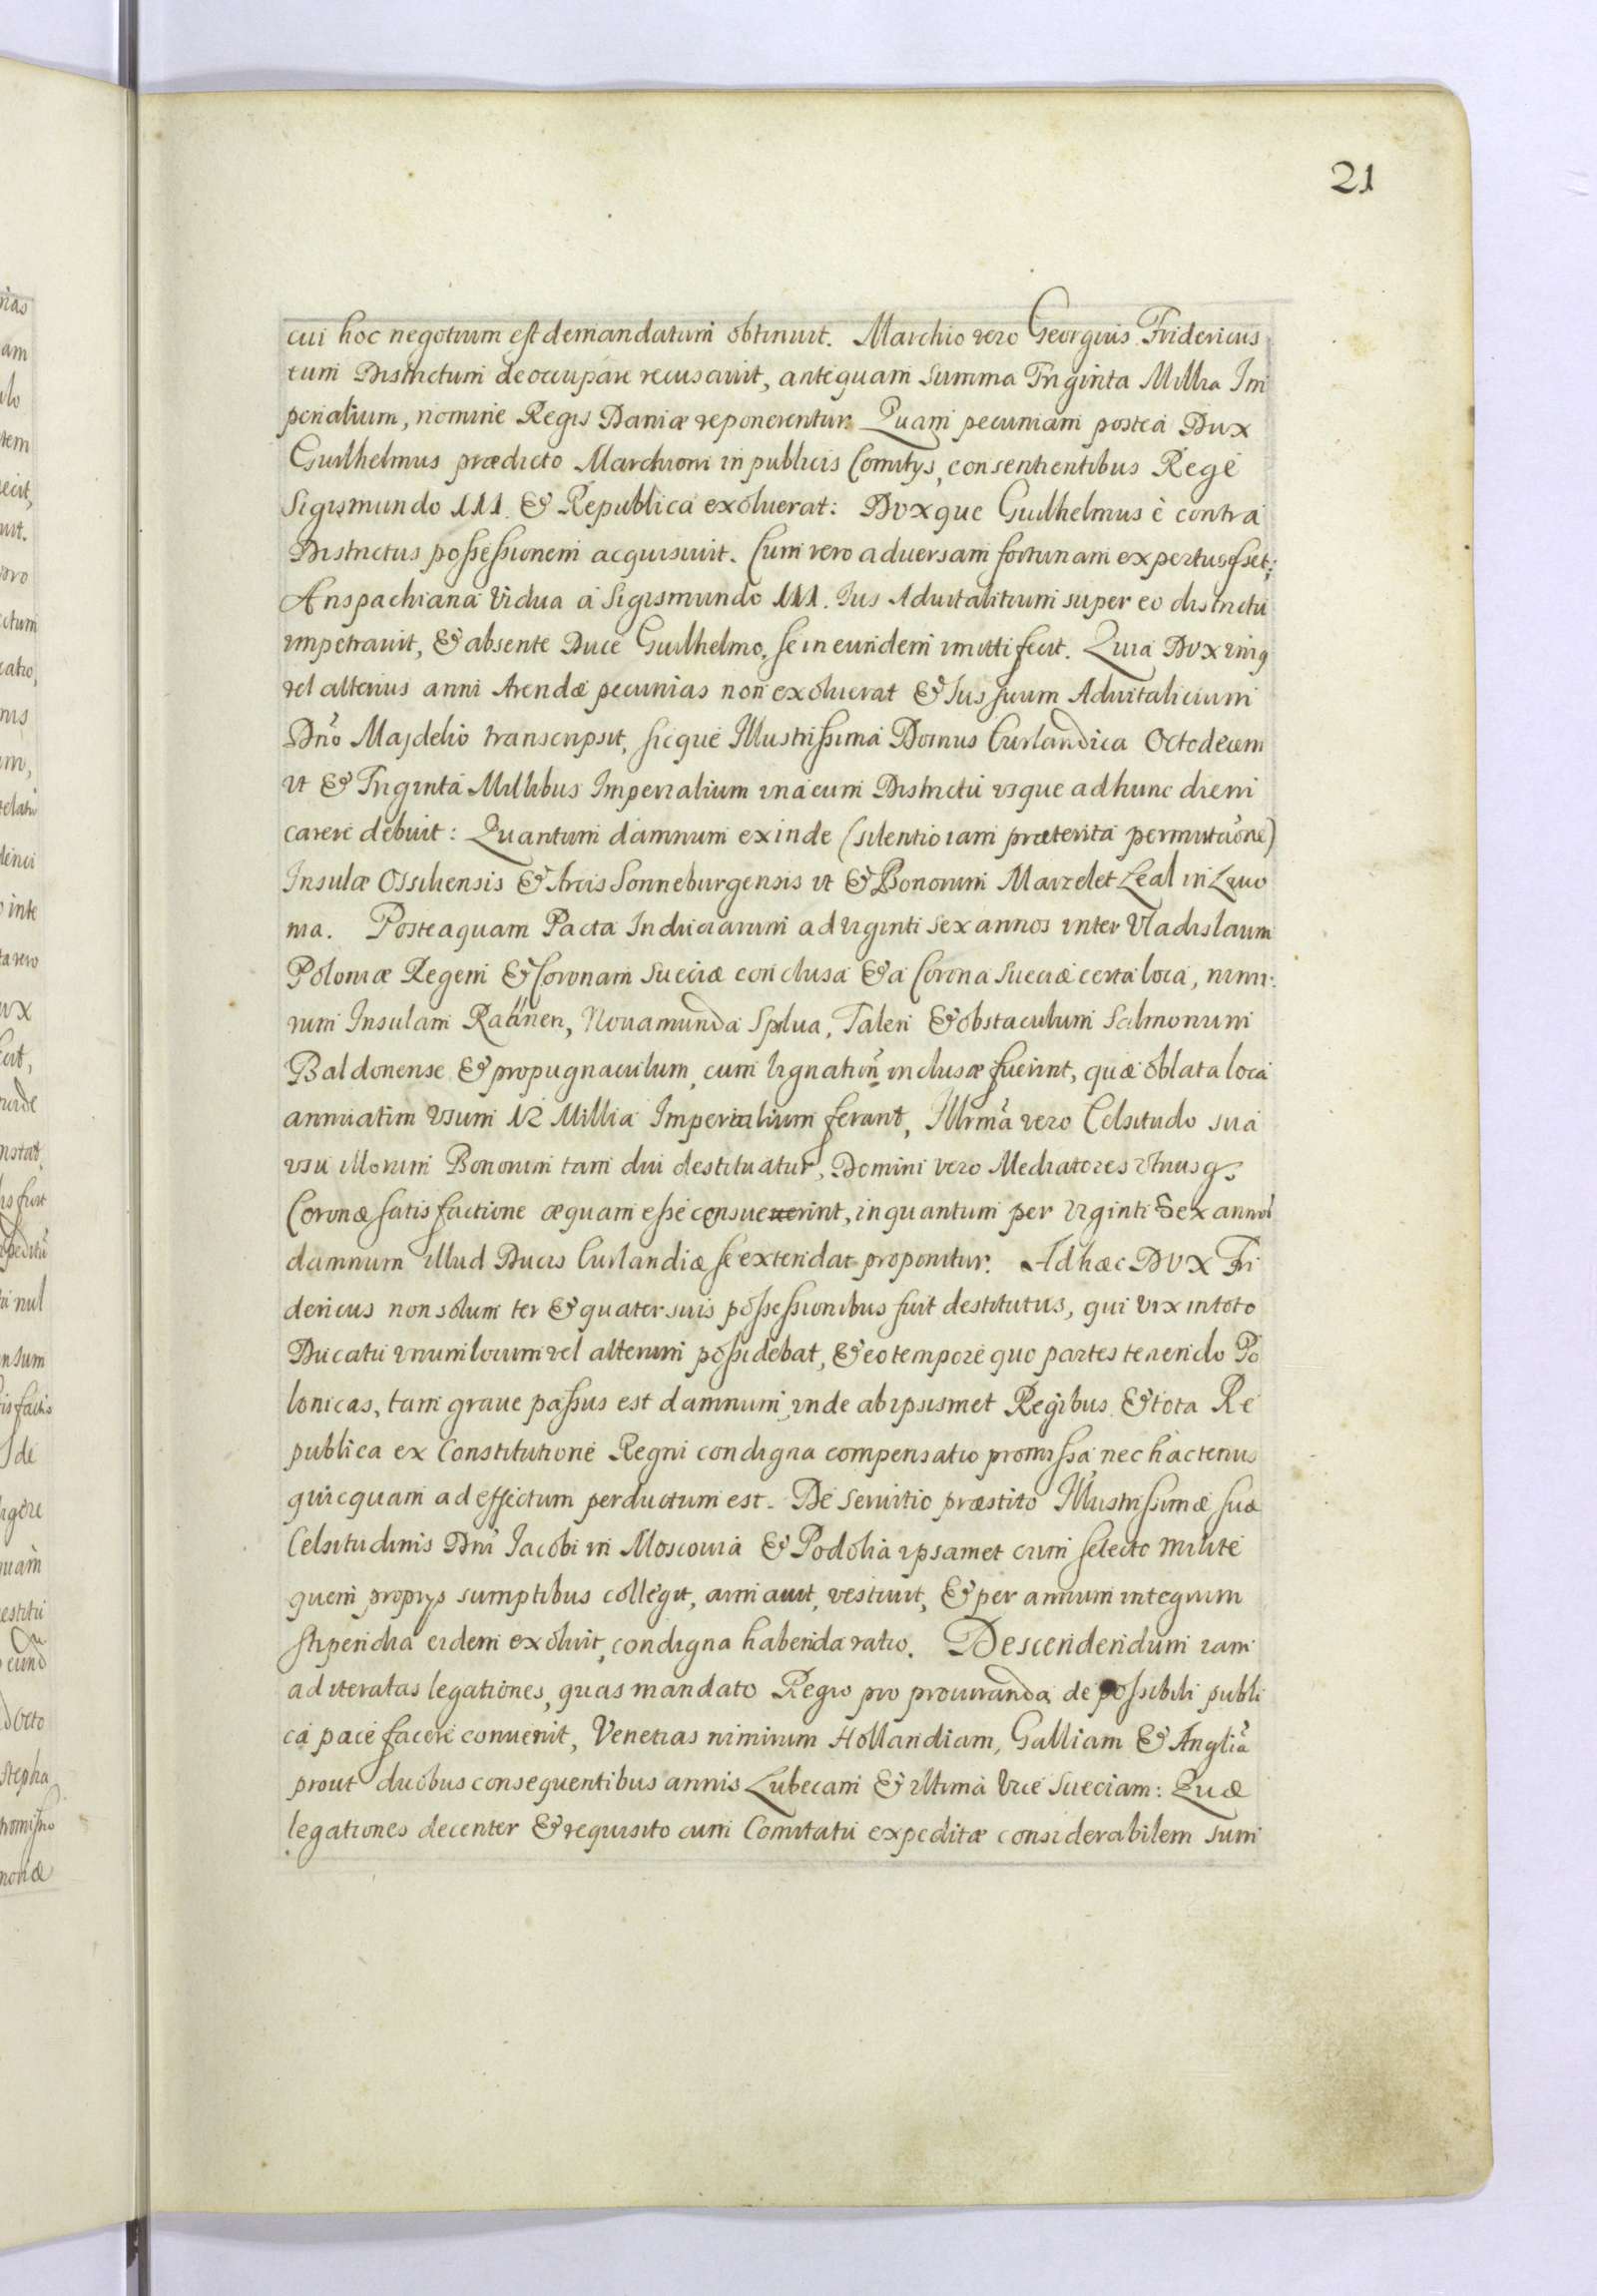 21
cui hoc negotium est demandatum obtinuit. Marchio vero Georgius Fridericus
tum Districtum deoccupare recusavit, antequam summa Triginta Millia Im
perialium, nomine Regis Daniæ reponerentur. Quam pecuniam posteà Dux
Guilhelmus prædicto Marchioni in publicis Comitys, consentientibus Rege
Sigismundo III. & Republica exoluerat: Duxque Guilhelmus è contrà
Districtus possessionem acquisiuit. Cum vero aduersam fortunam expertus esset;
Anspachiana Vidua à Sigismundo III. Ius Aduitalitium super eo districtu
impetrauit, & absente Duce Guilhelmo, se in eundem imitti fecit. Quia Dux uniꝫ
vel alterius anni Arendæ pecunias non exoluerat & Ius suum Aduitalicium
Dño Majdelio transcripsit, sicque Illustrissima Domus Curlandica Octodecem
ut & Triginta Millibus Imperialium unà cum Districtu usque ad hunc diem
carere debuit: Quantum damnum exinde (silentio iam præterita permutãone)
Insulæ Ossiliensis & Arcis Sonneburgensis ut & Bonorum Marzelet Leal in Liuo
nia. Posteaquam Pacta Induciarum ad viginti sex annos inter Vladislaum
Poloniæ Regem & Coronam Sueciæ conclusa & a Corona Sueciæ certa loca, nimi:
rum Insulam Ratinen, Nouamunda Spilua, Taleri & obstaculum Salmonum
Baldonense & propugnaculum, cum lignatiõn inclusæ fuerint, quæ oblata loca
annuatim usum 12 Millia Imperialium ferant, Illrmã vero Celsitudo sua
usu illorum Bonorum tam diu destituatur, Domini vero Mediatores utriusqꝫ
Coronæ satisfactione æquam esse consueuerint, inquantum per viginti Sex annos
damnum illud Ducis Curlandiæ se extendat proponitur. Ad hæc Dux Fri
dericus non solum ter & quater suis possessionibus fuit destitutus, qui vix in toto
Ducatu unum locum vel alterum possidebat, & eo tempore quo partes tenendo Po
lonicas, tam graue passus est damnum, inde ab ipsismet Regibus & tota Re
publica ex Constitutione Regni condigna compensatio promissa nec hactenus
quicquam ad effectum perductum est. De seruitio præstito Illustrissimæ suæ
Celsitudinis Dñi Iacobi in Moscouia & Podolia ipsamet cum selecto milite
quem proprys sumptibus collegit, armauit, vestiuit, & per annum integrum
stipendia eidem exoluit, condigna habenda ratio. Descendendum iam
ad iteratas legationes, quas mandato Regio pro procuranda de possibili publi
ca pace facere conuenit, Venetias nimirum Hollandiam, Galliam & Angliã
prout duobus consequentibus annis Lubecam & ultima vice Sueciam: Quæ
legationes decenter & requisito cum Comitatu expeditæ considerabilem sum